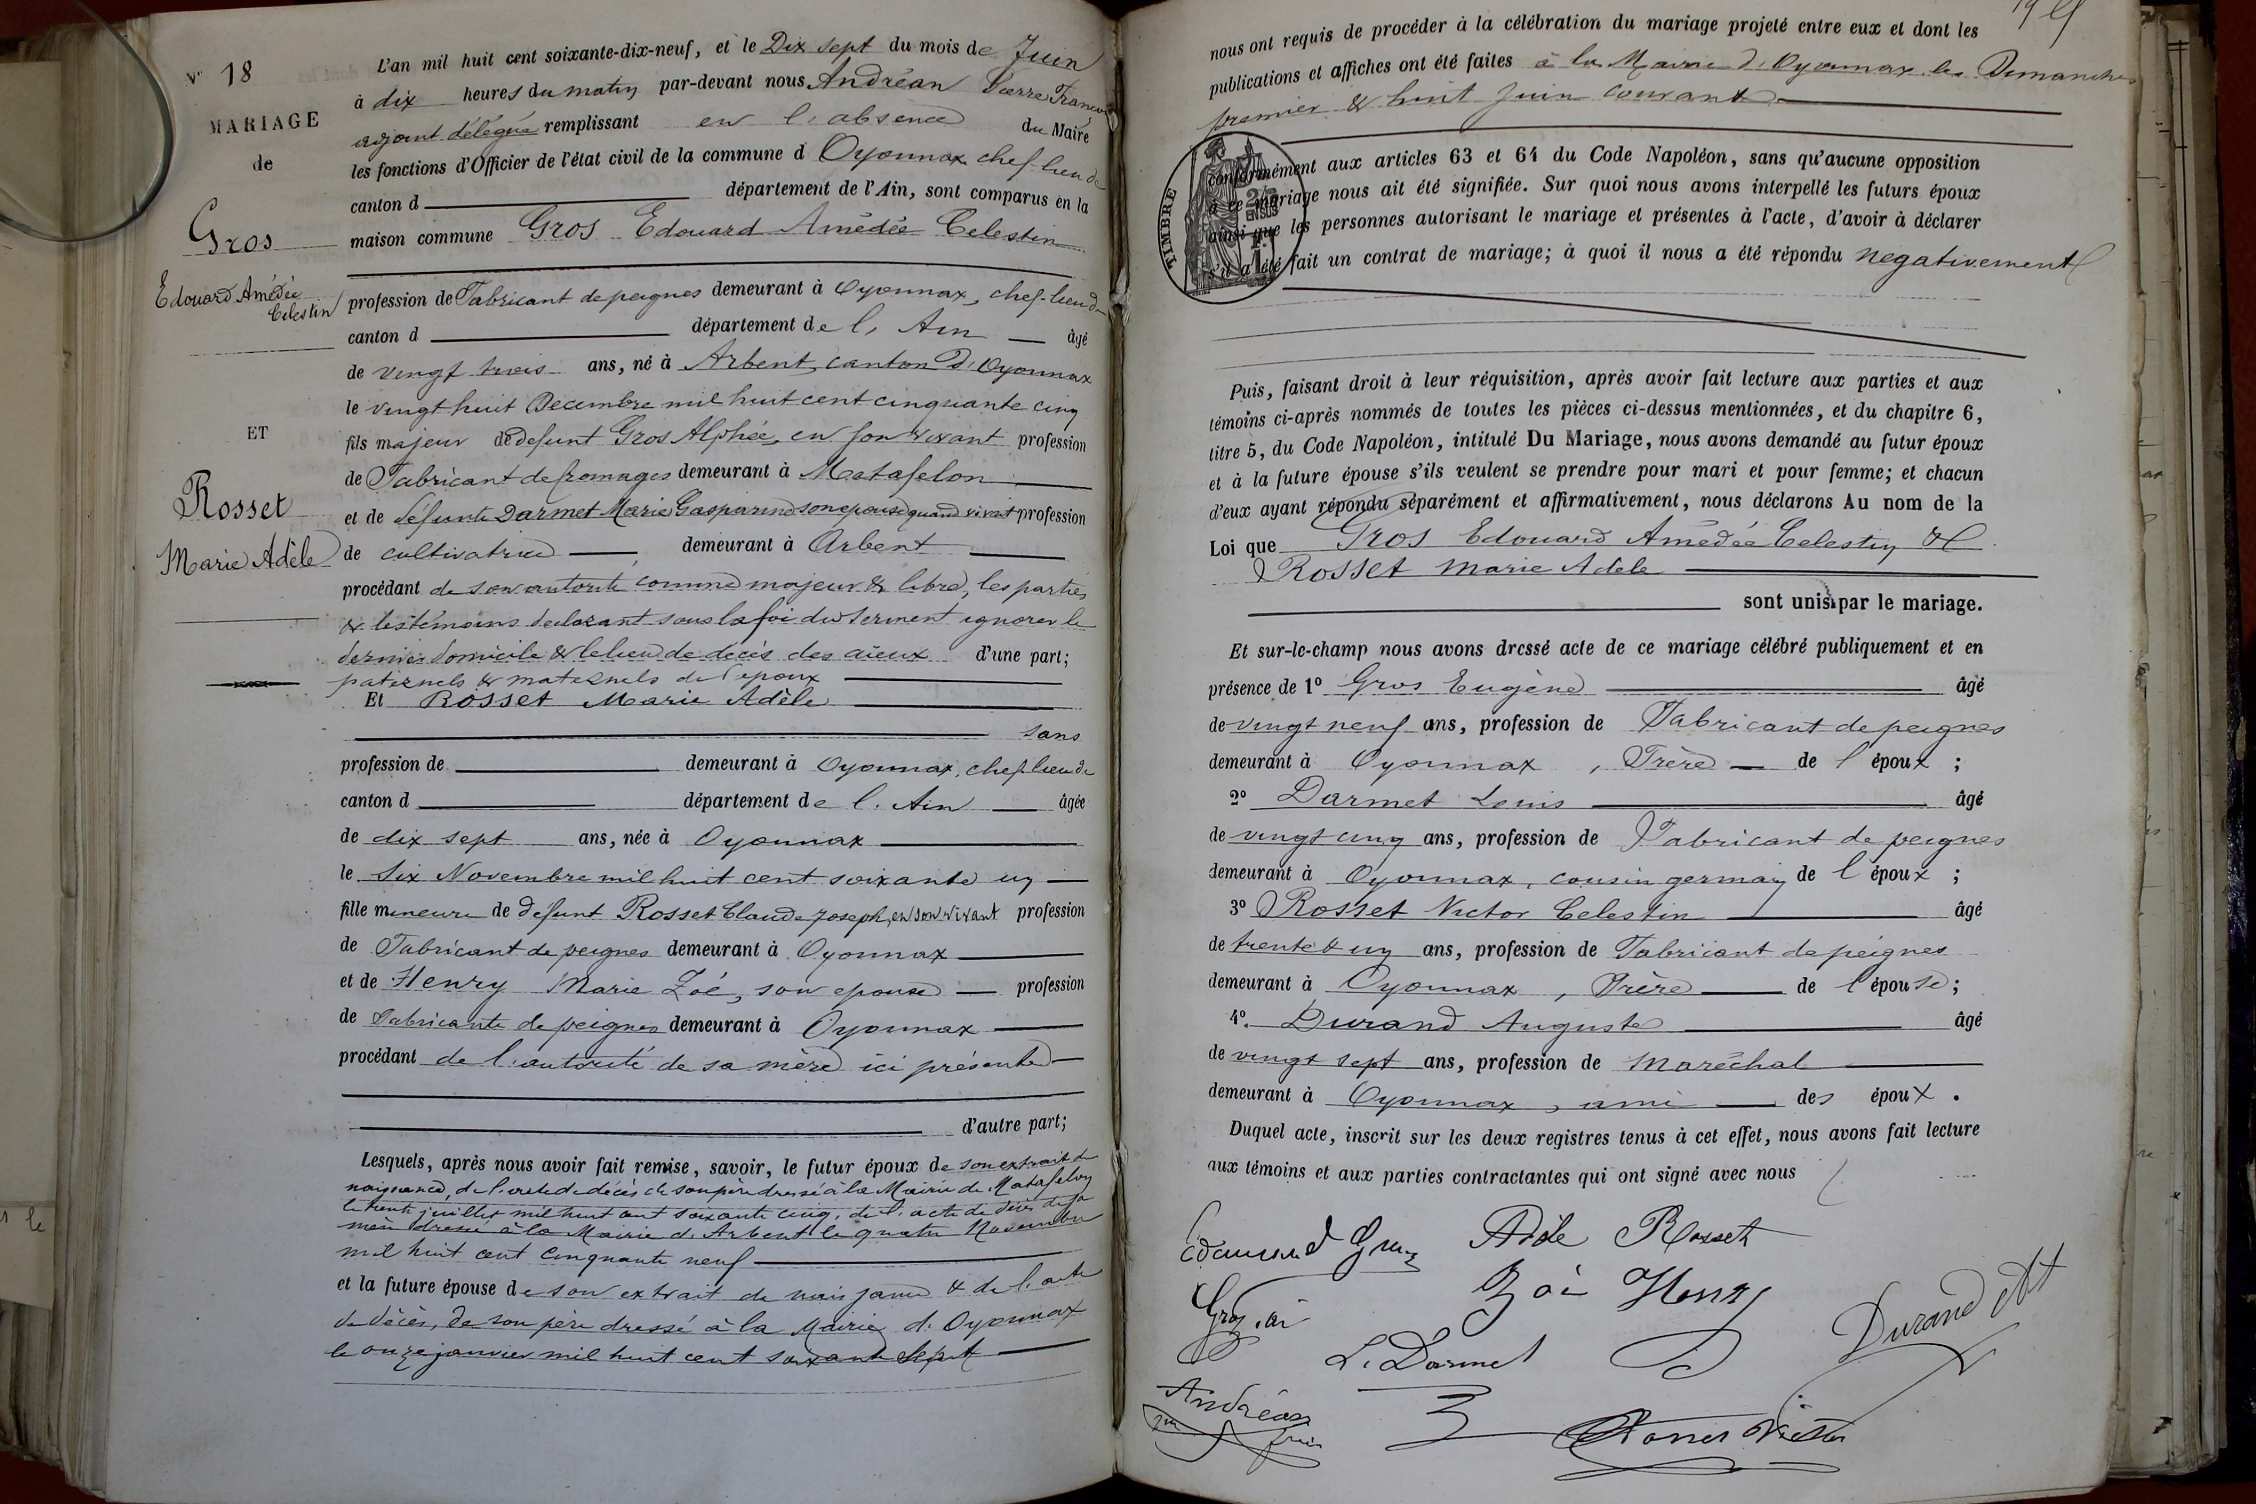 N° 18
MARIAGE
de
Gros
Edouard Amédée
Celestin
ET
Rosset
Marie Adèle
L'an mil huit cent soixante-dix-neuf, et le Dix sept du mois de Juin
à dix heures du matin par-devant nous Andréan Pierre François
adjoint délégué remplissant en l'absence du Maire
les fonctions d'Officier de l'état civil de la commune d Oyonnax chef-lieu de
canton d département de l'Ain, sont comparus en la
maison commune Gros Edouard Amédée Celestin
profession de Fabricant de peignes demeurant à Oyonnax, chef-lieu de
canton d département de l'Ain âgé
de vingt trois ans, né à Arbent, canton d'Oyonnax
le vingt huit Decembre mil huit cent cinquante cinq
fils majeur de defunt Gros Alphée, en son vivant profession
de Fabricant de fromages demeurant à Matafelon
et de défunte Darmet Marie Gasparine son epouse quand vivait profession
de cultivatrice demeurant à Arbent
procédant de son autorité comme majeur & libre, les parties
& les témoins declarant sous la foi du serment ignorer le
dernier domicile & le lieu de décès des aïeux d'une part;
paternels & maternels de l'epoux
Et Rosset Marie Adèle
sans
profession de demeurant à Oyonnax, chef lieu de
canton d département de l'Ain âgée
de dix sept ans, née à Oyonnax
le six Novembre mil huit cent soixante un
fille mineure de defunt Rosset Claude Joseph, en son vivant profession
de Fabricant de peignes demeurant à Oyonnax
et de Henry Marie Zoé, son epouse profession
de Fabricante de peignes demeurant à Oyonnax
procédant de l'autorité de sa mère ici présente
d'autre part;
Lesquels, après nous avoir fait remise, savoir, le futur époux de son extrait de
naissance, de l'acte de décès de son père dressé à la Mairie de Matafelon
le trente juillet mil huit cent soixante cinq, de l'acte de décès de sa
mère dressé à la Mairie d'Arbent le quatre Novembre
mil huit cent cinquante neuf
et la future épouse de son extrait de naissance & de l'acte
de décès, de son père dressé à la Mairie d'Oyonnax
le onze janvier mil huit cent soixante sept
nous ont requis de procéder à la célébration du mariage projeté entre eux et dont les
publications et affiches ont été faites à la Mairie d'Oyonnax les Dimanches
premier & huit Juin courant
TIMBRE
conformément aux articles 63 et 64 du Code Napoléon, sans qu'aucune opposition
à ce mariage nous ait été signifiée. Sur quoi nous avons interpellé les futurs époux
ainsi que les personnes autorisant le mariage et présentes à l'acte, d'avoir à déclarer
s'il a été fait un contrat de mariage; à quoi il nous a été répondu negativement
Puis, faisant droit à leur réquisition, après avoir fait lecture aux parties et aux
témoins ci-après nommés de toutes les pièces ci-dessus mentionnées, et du chapitre 6,
titre 5, du Code Napoléon, intitulé Du Mariage, nous avons demandé au futur époux
et à la future épouse s'ils veulent se prendre pour mari et pour femme; et chacun
d'eux ayant répondu séparément et affirmativement, nous déclarons Au nom de la
Loi que Gros Edouard Amédée Celestin &
Rosset Marie Adele
sont unis par le mariage.
Et sur-le-champ nous avons dressé acte de ce mariage célébré publiquement et en
présence de 1° Gros Eugène âgé
de vingt neuf ans, profession de Fabricant de peignes
demeurant à Oyonnax, Frère de l'époux;
2° Darmet Louis âgé
de vingt cinq ans, profession de Fabricant de peignes
demeurant à Oyonnax, cousin germain de l'époux;
3° Rosset Victor Celestin âgé
de trente & un ans, profession de Fabricant de peignes
demeurant à Oyonnax, Frère de l'épouse;
4° Durand Auguste âgé
de vingt sept ans, profession de Maréchal
demeurant à Oyonnax, ami des époux.
Duquel acte, inscrit sur les deux registres tenus à cet effet, nous avons fait lecture
aux témoins et aux parties contractantes qui ont signé avec nous
Edouard Gros Adèle Rosset
Zoé Henry
Gros
L. Darmet Durand
Andréan
Rosset Victor